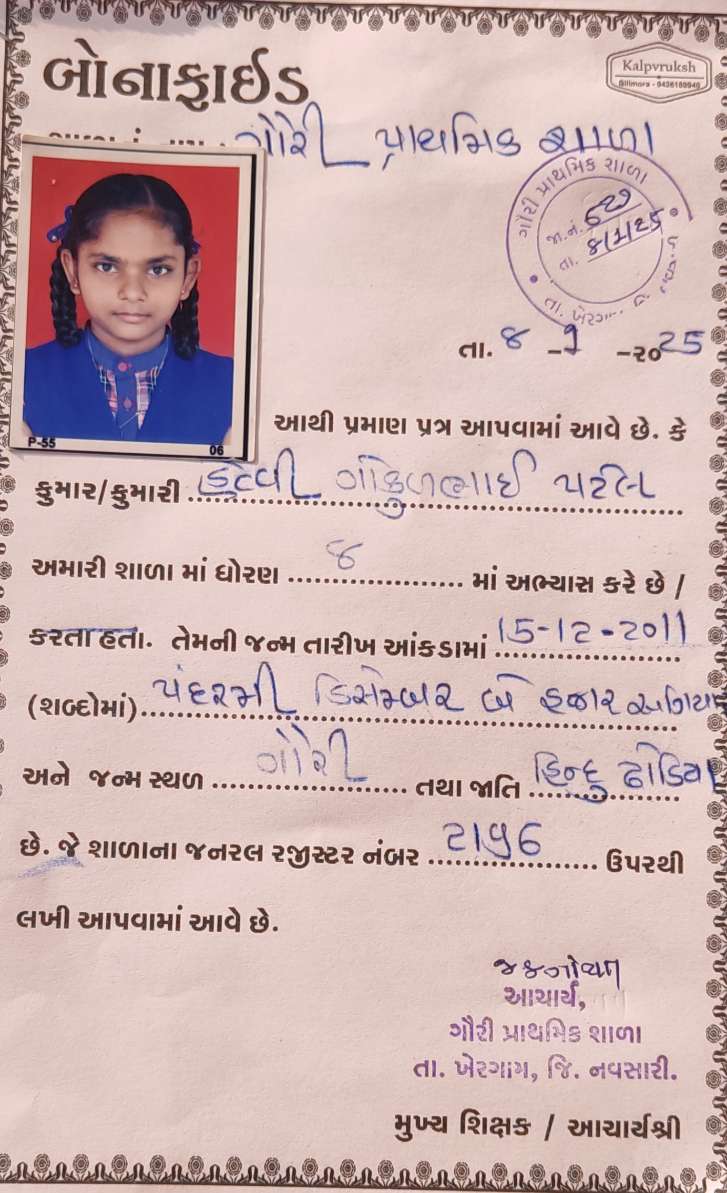 બોનાફાઈડ
Kalpvruksh
Billimora - 9426189949
ગૌરી પ્રાથમિક શાળા
ગૌરી પ્રાથમિક શાળા
જા.નં.
તા. ૪/1/25
તા. ખેરગામ
તા. ૪ - ૧ - ૨૦25
P-55 06
આથી પ્રમાણ પત્ર આપવામાં આવે છે. કે
કુમાર/કુમારી ગોકુળભાઈ પટેલ
અમારી શાળા માં ધોરણ ૪ માં અભ્યાસ કરે છે /
કરતા હતા. તેમની જન્મ તારીખ આંકડામાં 15-12-2011
(શબ્દોમાં) પંદરમી ડિસેમ્બર બે હજાર અગિયાર
અને જન્મ સ્થળ ગૌરી તથા જાતિ હિન્દુ ઢોડિયા
છે. જે શાળાના જનરલ રજીસ્ટર નંબર ઉપરથી
લખી આપવામાં આવે છે.
આચાર્ય,
ગૌરી પ્રાથમિક શાળા
તા. ખેરગામ, જિ. નવસારી.
મુખ્ય શિક્ષક / આચાર્યશ્રી